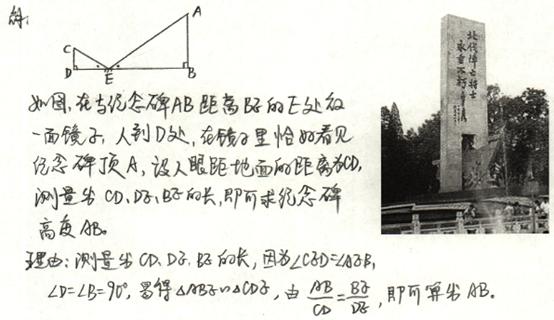 解:
A
C
D E B
如图,在与纪念碑AB距离BE的E处放
一面镜子,人到D处,在镜子里恰好看见
纪念碑顶A,设人眼距地面的距离为CD,
测量出CD、DE、BE的长,即可求纪念碑
高度AB。
理由:测量出CD、DE、BE的长,因为∠CED=∠AEB,
∠D=∠B=90°,易得△ABE∽△CDE,由 AB/CD=BE/DE,即可算出AB。
北伐阵亡将士
永垂不朽